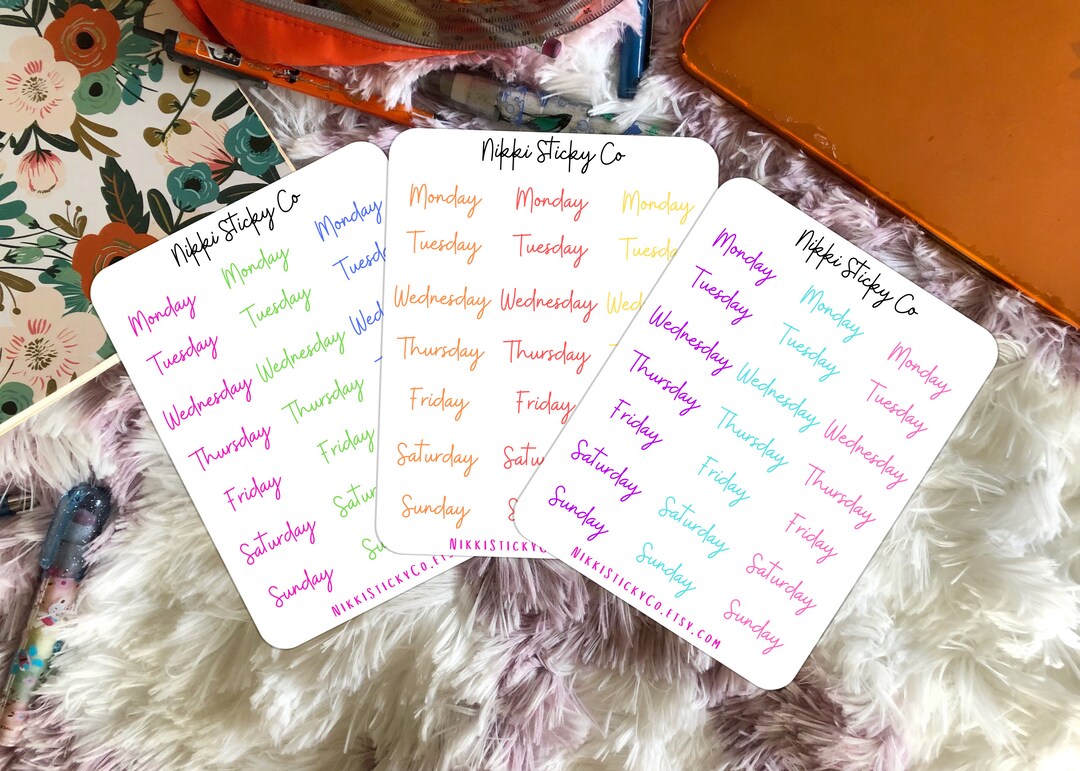 Nikki Sticky Co
Monday Monday Monday
Tuesday Tuesday Tuesda
Wednesday Wednesday Wed
Thursday Thursday
Friday Friday
Saturday Satur
Sunday Su
NikkiStickyCo.Etsy
Nikki Sticky Co
Monday Monday Monday
Tuesday Tuesday Tuesda
Wednesday Wednesday Wed
Thursday Thursday
Friday Friday
Saturday Satu
Sunday
NikkiStickyCo
Nikki Sticky Co
Monday Monday Monday
Tuesday Tuesday Tuesday
Wednesday Wednesday Wednesday
Thursday Thursday Thursday
Friday Friday Friday
Saturday Saturday Saturday
Sunday Sunday Sunday
NikkiStickyCo.Etsy.com